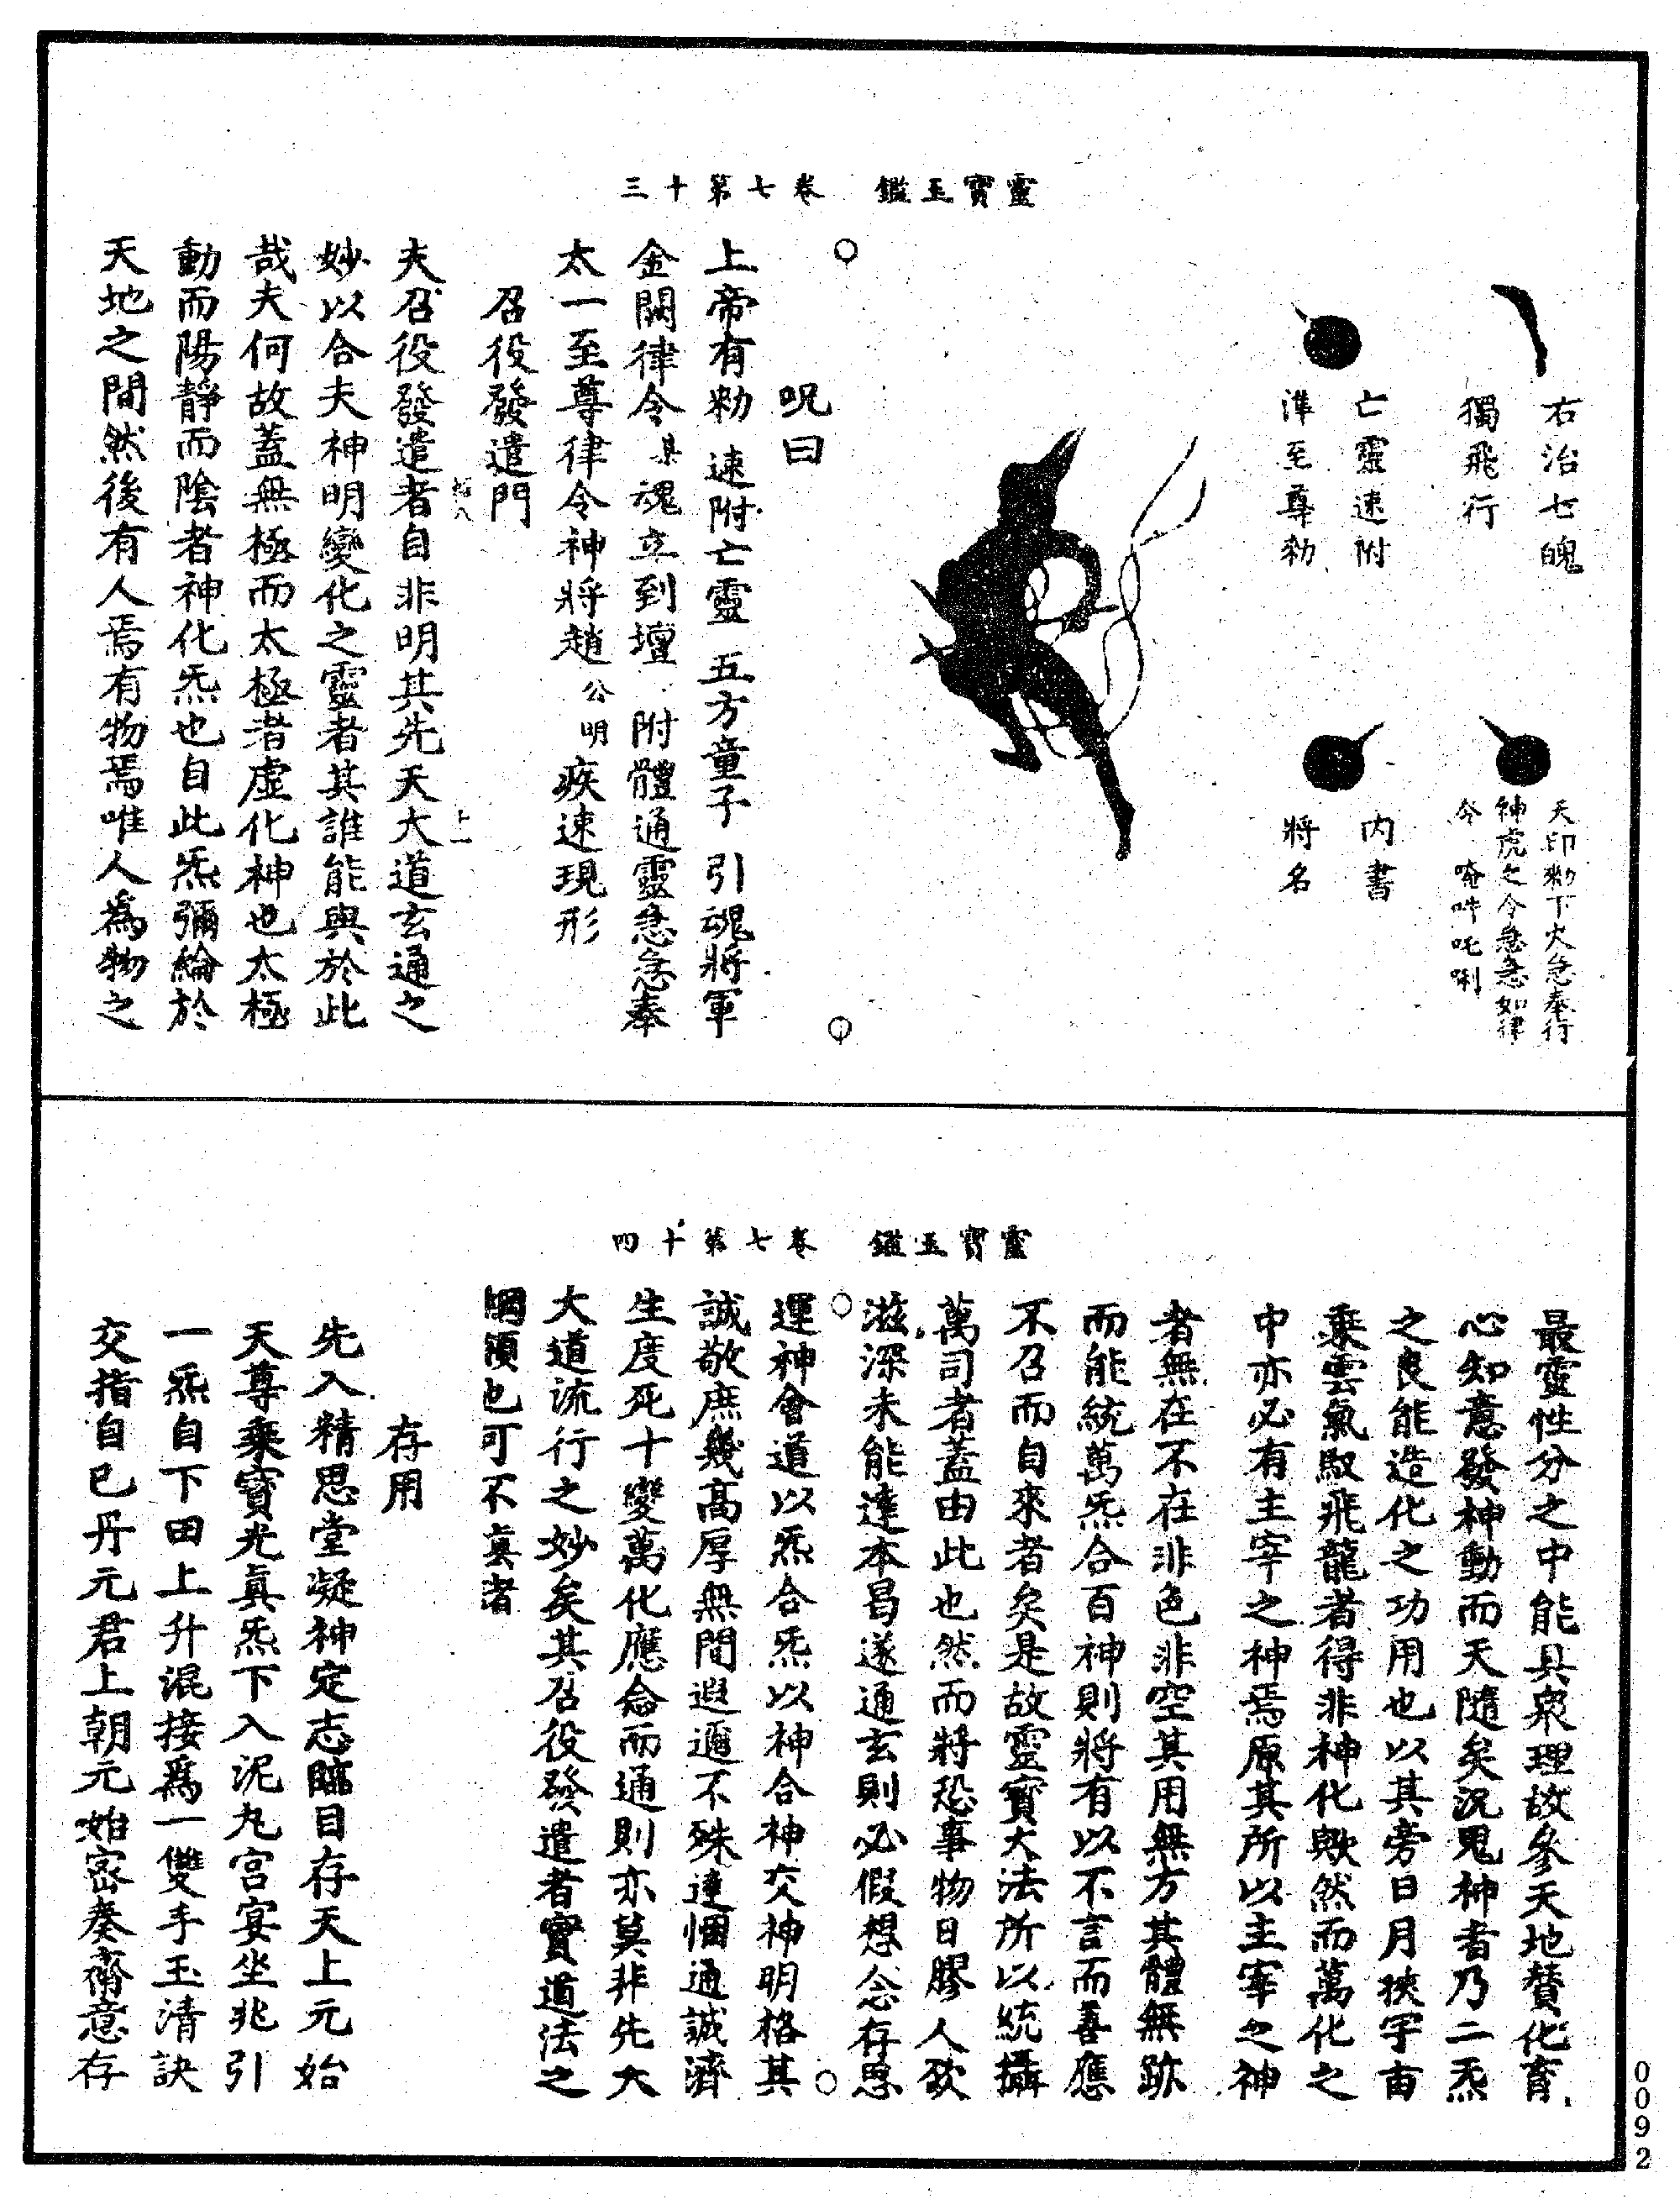 靈寶玉鑑　卷七第十三
右治七魄
獨飛行
亡靈速附
準至尊勑
天印勑下火急奉行
神虎之令急急如律
令　唵吽吒唎
内書
將名
呪曰
上帝有勑　速附亡靈　五方童子　引魂將軍
金闕律令　某魂立到壇　附體通靈急急奉
太一至尊律令神將趙公明疾速現形
召役發遣門
夫召役發遣者自非明其先天大道玄通之
妙以合夫神明變化之靈者其誰能與於此
哉夫何故蓋無極而太極者虛化神也太極
動而陽靜而陰者神化炁也自此炁彌綸於
天地之間然後有人焉有物焉唯人爲物之
靈寶玉鑑　卷七第十四
最靈性分之中能具衆理故參天地賛化育
心知意發神動而天隨矣況鬼神者乃二炁
之良能造化之功用也以其旁日月挾宇宙
乗雲氣馭飛龍者得非神化歟然而萬化之
中亦必有主宰之神焉原其所以主宰之神
者無在不在非色非空其用無方其體無跡
而能統萬炁合百神則將有以不言而善應
不召而自來者矣是故靈寶大法所以統攝
萬司者蓋由此也然而將恐事物日膠人欲
滋深未能達本曷遂通玄則必假想念存思
運神會道以炁合炁以神合神交神明格其
誠敬庶幾髙厚無間遐邇不殊達悃通誠濟
生度死十變萬化應念而通則亦莫非先天
大道流行之妙矣其召役發遣者實道法之
綱領也可不眞者
存用
先入精思堂凝神定志臨目存天上元始
天尊乗寶光眞炁下入泥丸宮宴坐兆引
一炁自下田上升混接爲一雙手玉清訣
交指自已丹元君上朝元始宻奏齋意存
0092